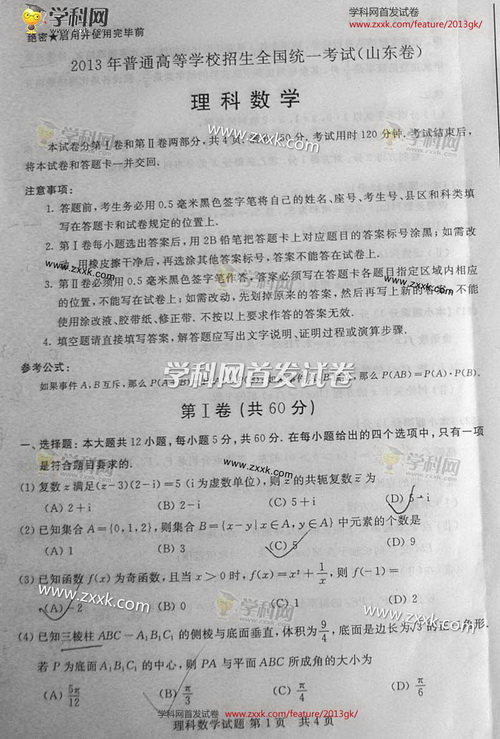 学科网
zxxk.com
学科网首发试卷
www.zxxk.com/feature/2013gk/
绝密★启用并使用完毕前
2013年普通高等学校招生全国统一考试(山东卷)
理科数学
www.zxxk.com
本试卷分第Ⅰ卷和第Ⅱ卷两部分,共4页.满分150分.考试用时120分钟.考试结束后,
将本试卷和答题卡一并交回.
注意事项:
1. 答题前,考生务必用0.5毫米黑色签字笔将自己的姓名、座号、考生号、县区和科类填
写在答题卡和试卷规定的位置上.
2. 第Ⅰ卷每小题选出答案后,用2B铅笔把答题卡上对应题目的答案标号涂黑;如需改
动,用橡皮擦干净后,再选涂其他答案标号,答案不能答在试卷上.
3. 第Ⅱ卷必须用0.5毫米黑色签字笔作答,答案必须写在答题卡各题目指定区域内相应
的位置,不能写在试卷上;如需改动,先划掉原来的答案,然后再写上新的答案;不能
使用涂改液、胶带纸、修正带.不按以上要求作答的答案无效.
4. 填空题请直接填写答案,解答题应写出文字说明、证明过程或演算步骤.
参考公式:
学科网首发试卷
如果事件A,B互斥,那么P(A 那么P(AB)=P(A)·P(B).
第Ⅰ卷(共60分)
一、选择题:本大题共12小题,每小题5分,共60分.在每小题给出的四个选项中,只有一项
是符合题目要求的.
www.zxxk.com
(1) 复数z满足(z-3)(2-i)=5(i为虚数单位),则z的共轭复数z̅为
(A) 2+i (B) 2-i (C) 5+i (D) 5-i
(2) 已知集合A={0,1,2},则集合B={x-y|x∈A,y∈A}中元素的个数是
(A) 1 (B) 3 (C) 5 (D) 9
(3) 已知函数f(x)为奇函数,且当x>0时,f(x)=x²+1/x,则f(-1)=
(A) -2 (B) 0 (C) 1 (D) 2
(4) 已知三棱柱ABC-A₁B₁C₁的侧棱与底面垂直,体积为9/4,底面是边长为√3的正三角形.
若P为底面A₁B₁C₁的中心,则PA与平面ABC所成角的大小为
(A) 5π/12 (B) π/3 (C) π/4 (D) π/6
学科网首发试卷
www.zxxk.com/feature/2013gk/
理科数学试题 第1页 共4页